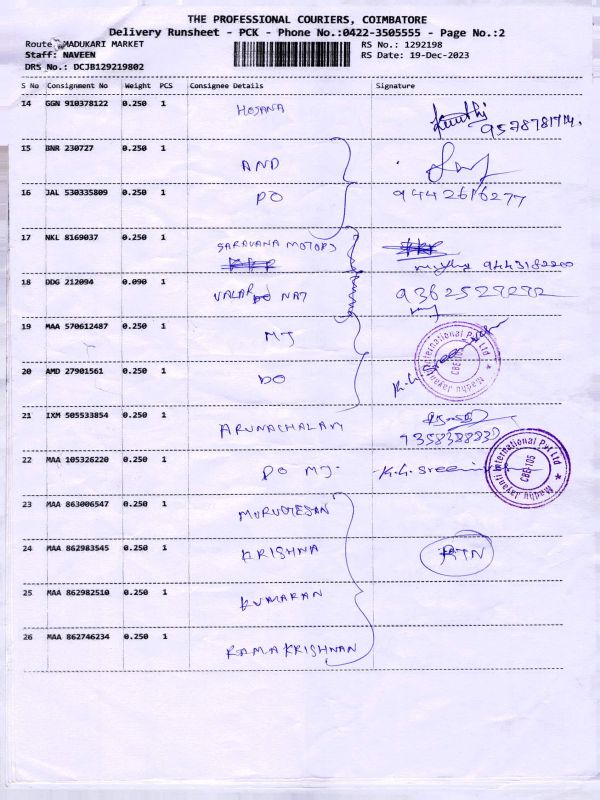 THE PROFESSIONAL COURIERS, COIMBATORE
Delivery Runsheet - PCK - Phone No.:0422-3505555 - Page No.:2
Route: MADUKARI MARKET RS No.: 1292198
Staff: NAVEEN RS Date: 19-Dec-2023
DRS No.: DCJB129219802
S No Consignment No Weight PCS Consignee Details Signature
14 GGN 910378122 0.250 1 HOSANA 9578781714.
15 BNR 230727 0.250 1 AND
16 JAL 530335809 0.250 1 DO 9442616277
17 NKL 8169037 0.250 1 SARAVANA MOTORS
9443182200
18 DDG 212094 0.090 1 VALAR NAT 9362527272
19 MAA 570612487 0.250 1 MJ
20 AMD 27901561 0.250 1 DO
Madhu Jayanti International Pvt Ltd
CBE-105
21 IXM 505533854 0.250 1 ARUNACHALAM
9358388837
22 MAA 105326220 0.250 1 DO MJ. K.G. Sreeni
Madhu Jayanti International Pvt Ltd
CBE-105
23 MAA 863006547 0.250 1 MURUGESAN
24 MAA 862983545 0.250 1 KRISHNA RTN
25 MAA 862982510 0.250 1 KUMARAN
26 MAA 862746234 0.250 1 RAMAKRISHNAN